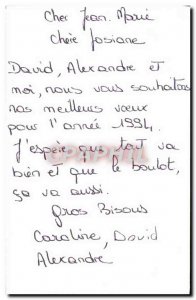 Cher Jean-Marie
Chère Josiane
David, Alexandre et
moi, nous vous souhaitons
nos meilleurs vœux
pour l'année 1994.
J'espère que tout va
bien et que le boulot,
ça va aussi.
Gros Bisous
Caroline, David
Alexandre